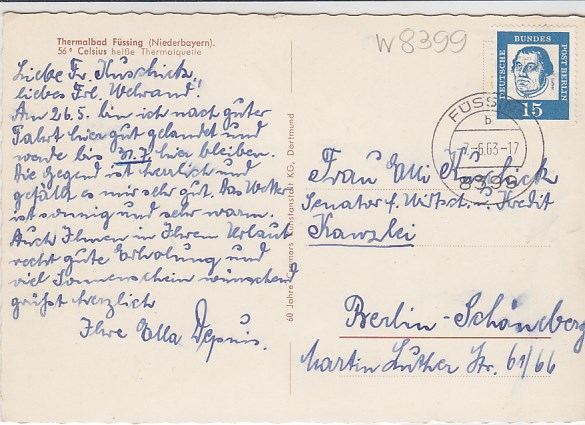 Thermalbad Füssing (Niederbayern).
56° Celsius heiße Thermalquelle
Liebe Fr. Kuschick,
liebes Frl. Wehrand!
Am 26.5. bin ich nach guter
Fahrt hier gut gelandet und
werde bis 21.7 hier bleiben.
Die Gegend ist herrlich und
gefällt es mir sehr gut. Das Wetter
ist sonnig und sehr warm.
Auch Ihnen in Ihrem Urlaub
recht gute Erholung und
viel Sonnenschein wünschend
grüßt herzlich
Ihre Ella
60 Jahre Cramers Kunstanstalt KG, Dortmund
W 8399
DEUTSCHE BUNDESPOST BERLIN
15
FÜSSING
b
6.63-17
8399
Frau Elli Kuschick
Senator f. Wirtsch. u. Kredit
Kanzlei
Berlin-Schöneberg
Martin Luther Str. 61/66